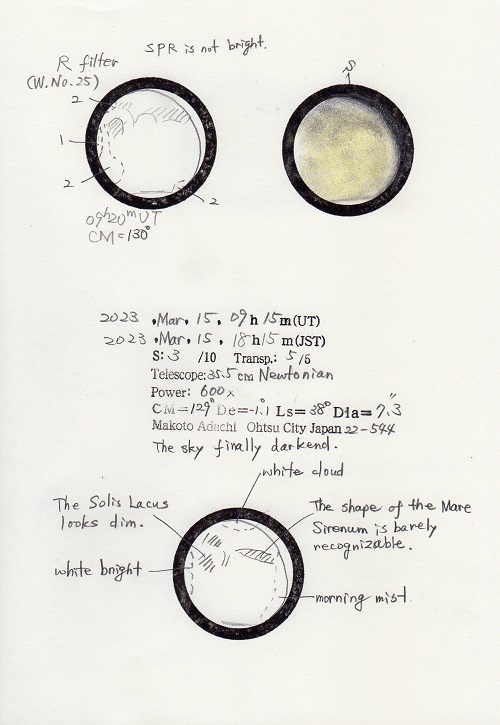 SPR is not bright.
R filter
(W.No.25)
2
1
2
2
09h20m UT
CM=130°
S
2023 ,Mar, 15, 09h 15m(UT)
2023 ,Mar, 15, 18h15m(JST)
S: 3 /10 Transp.: 5/5
Telescope:35.5cm Newtonian
Power: 600x
CM=129° De=-1.1 Ls=38° Dia=7."3
Makoto Adachi Ohtsu City Japan 22-544
The sky finally darkend.
white cloud
The Solis Lacus
looks dim.
The shape of the Mare
Sirenum is barely
recognizable.
white bright
morning mist.